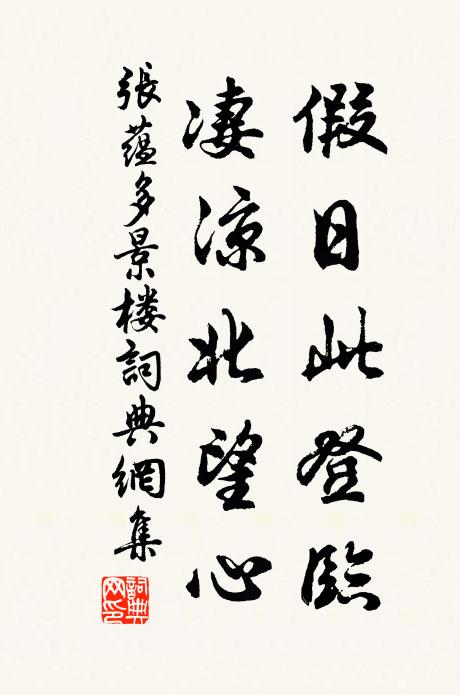 假日此登臨
凄凉北望心
張蘊多景楼詞典網集
詞典網印